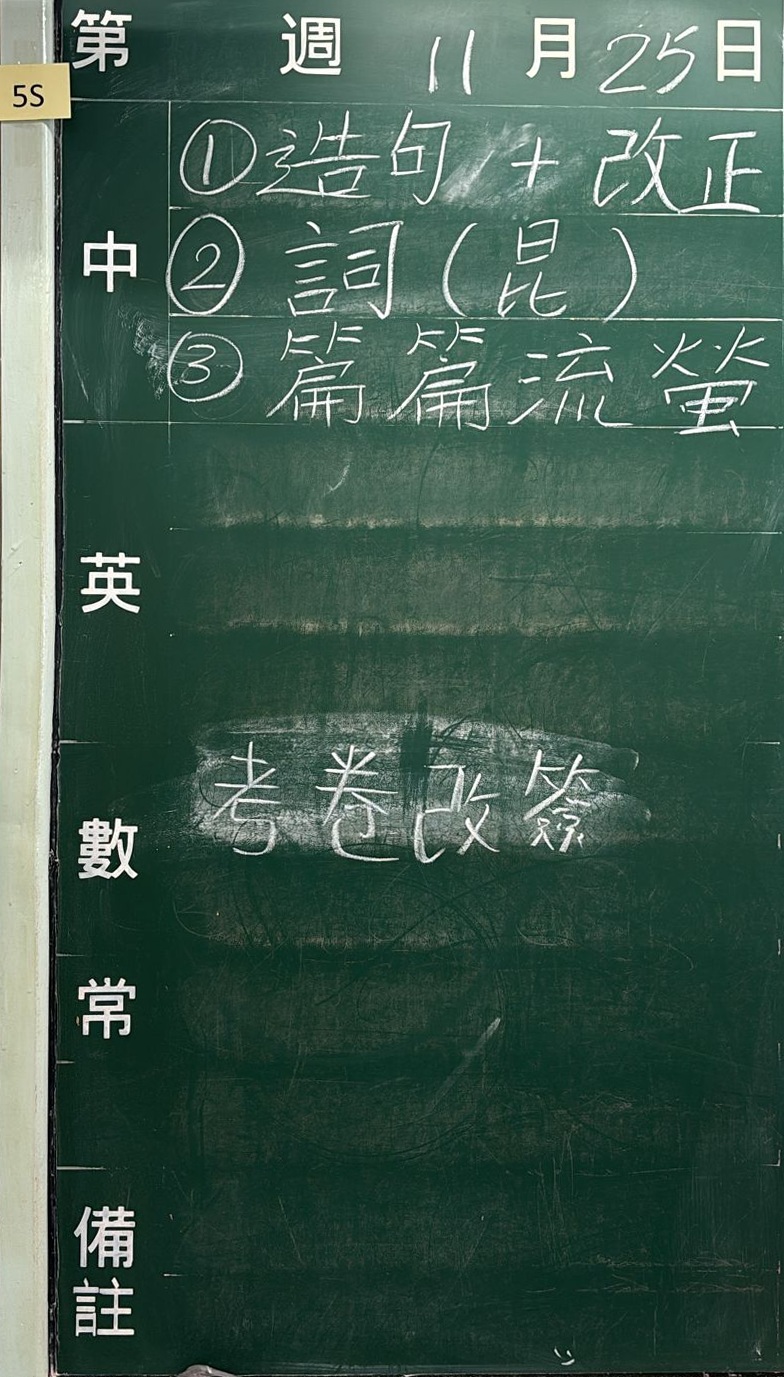 第 週 11 月 25 日
5S
中
①造句 + 改正
②詞(昆)
③篇篇流螢
英
數
考卷改簽
常
備註